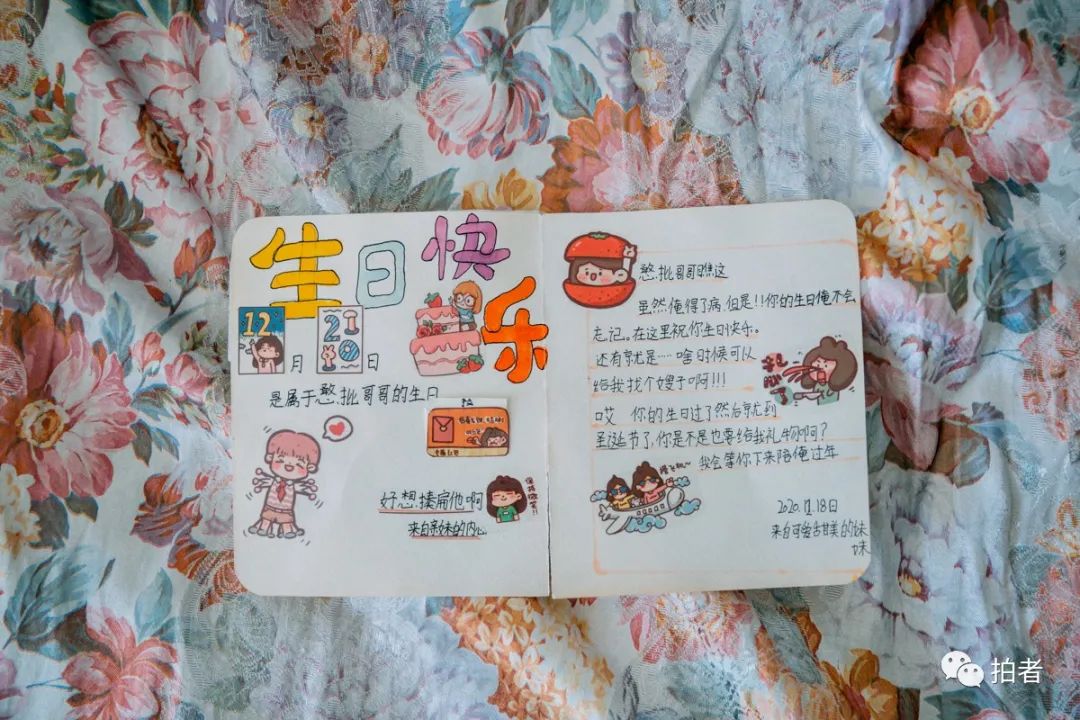 生日快乐
12月21日
是属于憨批哥哥的生日
好想揍扁他啊
来自亲妹的内心
保持微笑!!
憨批哥哥瞧这
虽然俺得了病,但是!!你的生日俺不会
忘记。在这里祝你生日快乐。
还有就是……啥时候可以
给我找个嫂子啊!!!
哎 你的生日过了然后就到
圣诞节了,你是不是也要给我礼物啊?
我会等你下来陪俺过年
2020.12.18日
来自可爱舌甘美的妹
妹
拍者